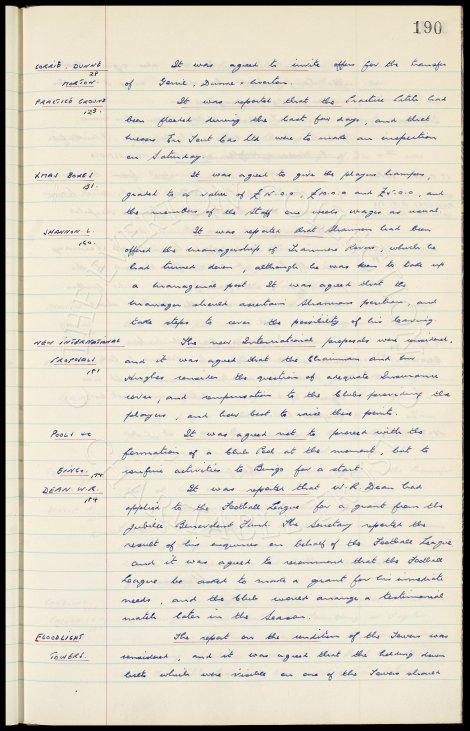 190
CORRIE, DUNNE It was agreed to invite offers for the transfer
28
MORTON of Gorrie, Dunne & Morton.
PRACTICE GROUND It was reported that the Practice Pitch had
123. been flooded during the last few days, and that
Messrs En Tout Cas Ltd were to make an inspection
on Saturday.
XMAS BOXES It was agreed to give the players hampers,
181. graded to a value of £15.0.0, £10.0.0 and £5.0.0, and
the members of the staff one weeks wages as usual.
SHANNON L. It was reported that Shannon had been
160. offered the managership of Tranmere Rovers, which he
had turned down, although he was keen to take up
a managerial post. It was agreed that the
manager should ascertain Shannons position, and
take steps to cover the possibility of his leaving.
NEW INTERNATIONAL The new International proposals were considered,
PROPOSALS and it was agreed that the Chairman and
181 Hughes consider the question of adequate Insurance
cover, and compensation to the Clubs providing the
players, and how best to raise these points.
POOLS &c It was agreed not to proceed with the
formation of a Club Pool at the moment, but to
BINGO. confine activities to Bingo for a start.
DEAN W.R. It was reported that W.R. Dean had
184 applied to the Football League for a grant from the
Jubilee Benevolent Fund. The Secretary reported the
result of his enquiries on behalf of the Football League
and it was agreed to recommend that the Football
League be asked to make a grant for his immediate
needs, and the Club would arrange a testimonial
match later in the Season.
FLOODLIGHT The report on the condition of the Towers was
TOWERS. considered, and it was agreed that the holding down
bolts which were visible on one of the Towers should